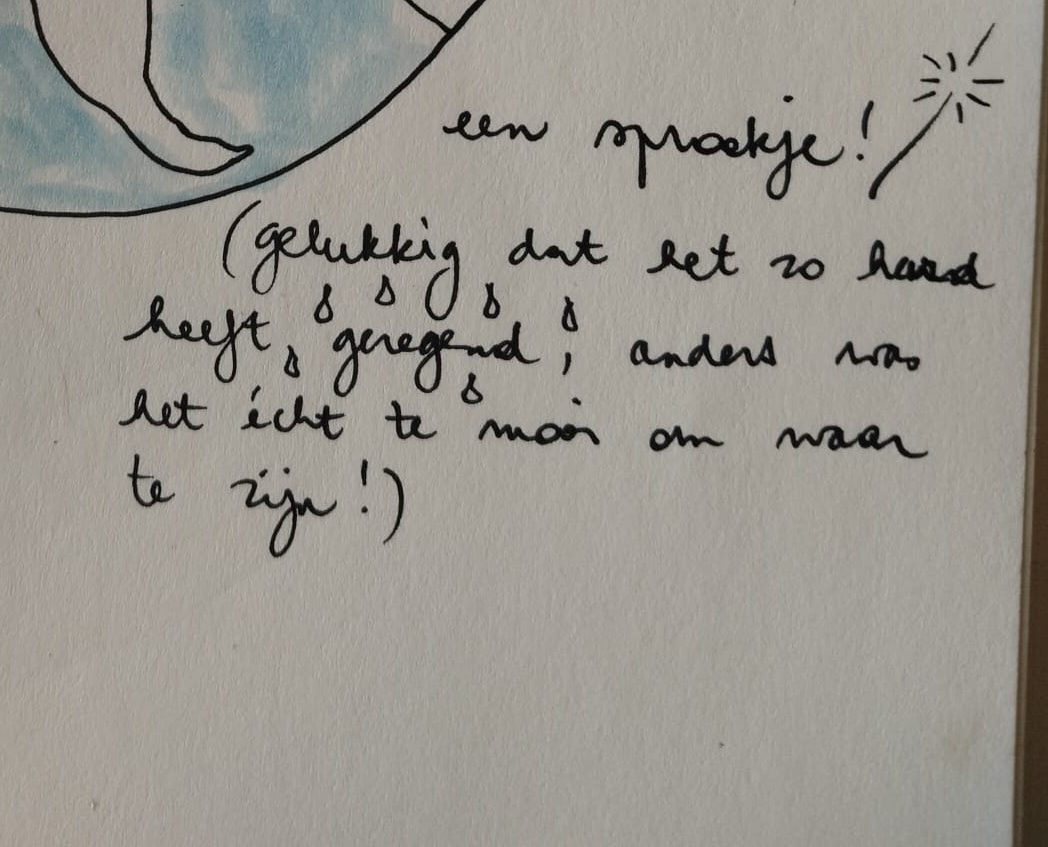 een sprookje!
(gelukkig dat het zo hard
heeft geregend, anders was
het écht te mooi om waar
te zijn!)